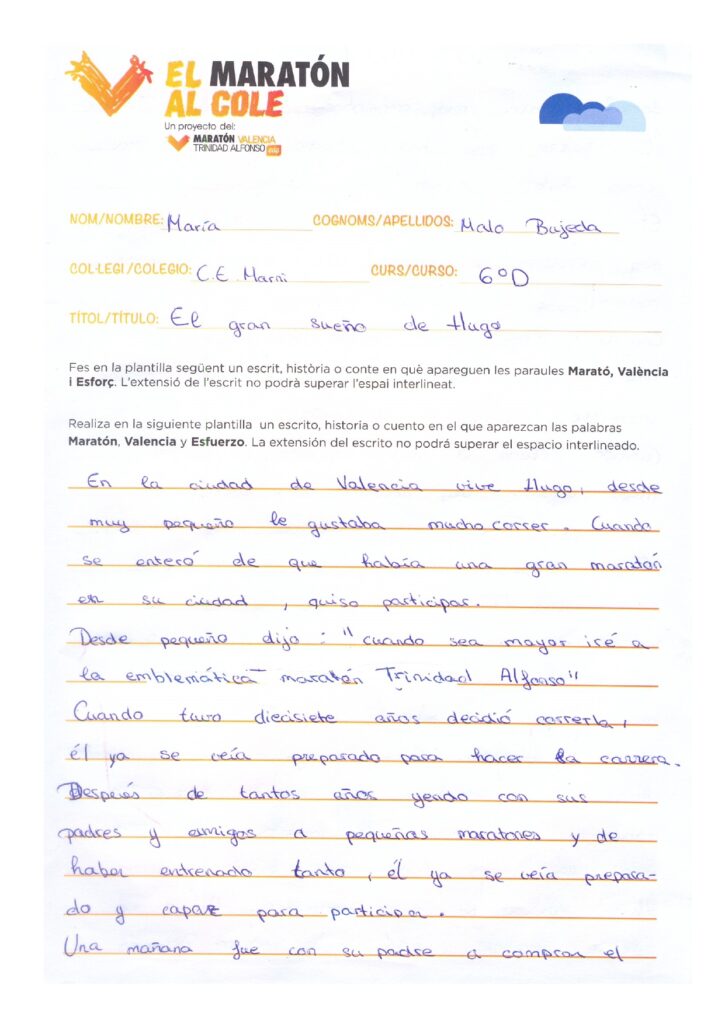 EL MARATÓN
AL COLE
Un proyecto del:
MARATÓN VALENCIA
TRINIDAD ALFONSO EDP
NOM/NOMBRE: María COGNOMS/APELLIDOS: Malo Bujeda
COL·LEGI/COLEGIO: C.E. Marni CURS/CURSO: 6ºD
TÍTOL/TÍTULO: El gran sueño de Hugo
Fes en la plantilla següent un escrit, història o conte en què apareguen les paraules Marató, València
i Esforç. L'extensió de l'escrit no podrà superar l'espai interlineat.
Realiza en la siguiente plantilla un escrito, historia o cuento en el que aparezcan las palabras
Maratón, Valencia y Esfuerzo. La extensión del escrito no podrá superar el espacio interlineado.
En la ciudad de Valencia vive Hugo, desde
muy pequeño le gustaba mucho correr. Cuando
se enteró de que había una gran maratón
en su ciudad, quiso participar.
Desde pequeño dijo: "cuando sea mayor iré a
la emblemática maratón Trinidad Alfonso"
Cuando tuvo diecisiete años decidió correrla,
él ya se veía preparado para hacer la carrera.
Después de tantos años yendo con sus
padres y amigos a pequeñas maratones y de
haber entrenado tanto, él ya se veía prepara-
do y capaz para participar.
Una mañana fue con su padre a comprar el